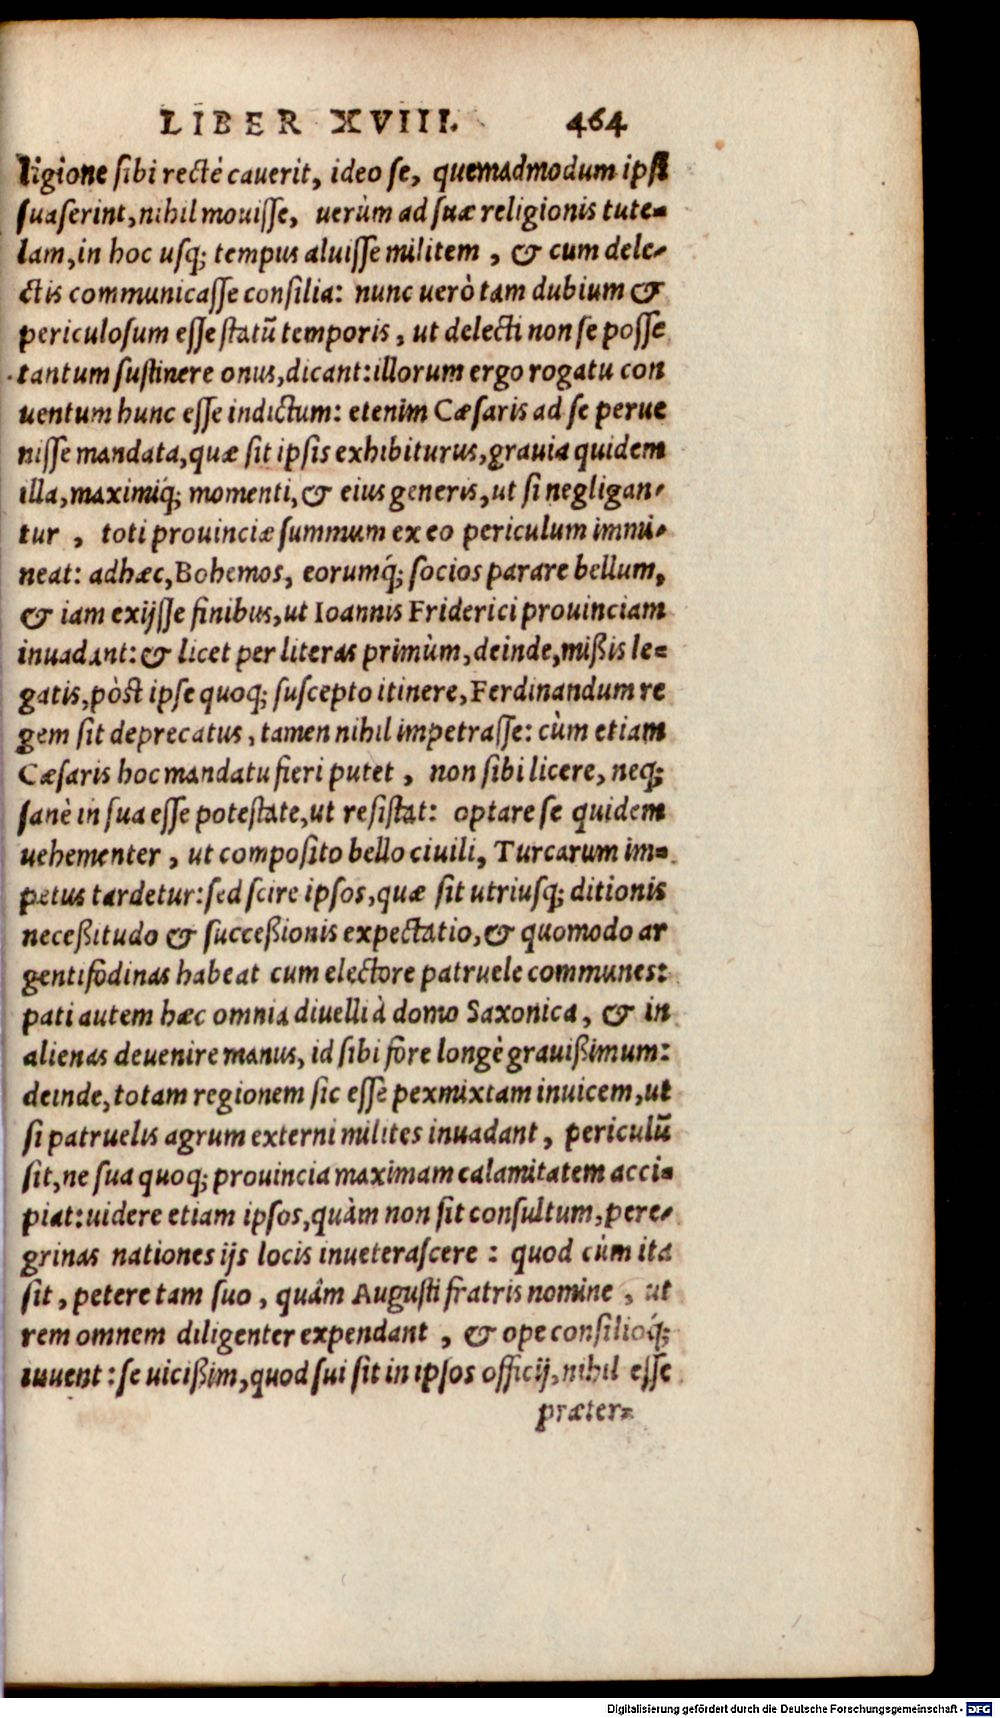 LIBER XVIII. 464
ligione sibi rectè cauerit, ideo se, quemadmodum ipsi
suaserint, nihil mouisse, uerùm ad suæ religionis tute=
lam, in hoc usq; tempus aluisse militem, & cum dele-
ctis communicasse consilia: nunc uerò tam dubium &
periculosum esse statū temporis, ut delecti non se posse
tantum sustinere onus, dicant: illorum ergo rogatu con
uentum hunc esse indictum: etenim Cæsaris ad se perue
nisse mandata, quæ sit ipsis exhibiturus, grauia quidem
illa, maximiq́; momenti, & eius generis, ut si negligan-
tur, toti prouinciæ summum ex eo periculum immi-
neat: adhæc, Bohemos, eorumq́; socios parare bellum,
& iam exijsse finibus, ut Ioannis Friderici prouinciam
inuadant: & licet per literas primùm, deinde, mißis le=
gatis, pòst ipse quoq; suscepto itinere, Ferdinandum re
gem sit deprecatus, tamen nihil impetrasse: cùm etiam
Cæsaris hoc mandatu fieri putet, non sibi licere, neq;
sanè in sua esse potestate, ut resistat: optare se quidem
uehementer, ut composito bello ciuili, Turcarum im=
petus tardetur: sed scire ipsos, quæ sit utriusq; ditionis
neceßitudo & succeßionis expectatio, & quomodo ar
gentifodinas habeat cum electore patruele communes:
pati autem hæc omnia diuelli à domo Saxonica, & in
alienas deuenire manus, id sibi fore longè grauißimum:
deinde, totam regionem sic esse pexmixtam inuicem, ut
si patruelis agrum externi milites inuadant, periculū
sit, ne sua quoq; prouincia maximam calamitatem acci=
piat: uidere etiam ipsos, quàm non sit consultum, pere-
grinas nationes ijs locis inueterascere: quod cùm ita
sit, petere tam suo, quâm Augusti fratris nomine, ut
rem omnem diligenter expendant, & ope consilioq́;
iuuent: se uicißim, quod sui sit in ipsos officij, nihil esse
præter=
Digitalisierung gefördert durch die Deutsche Forschungsgemeinschaft - DFG